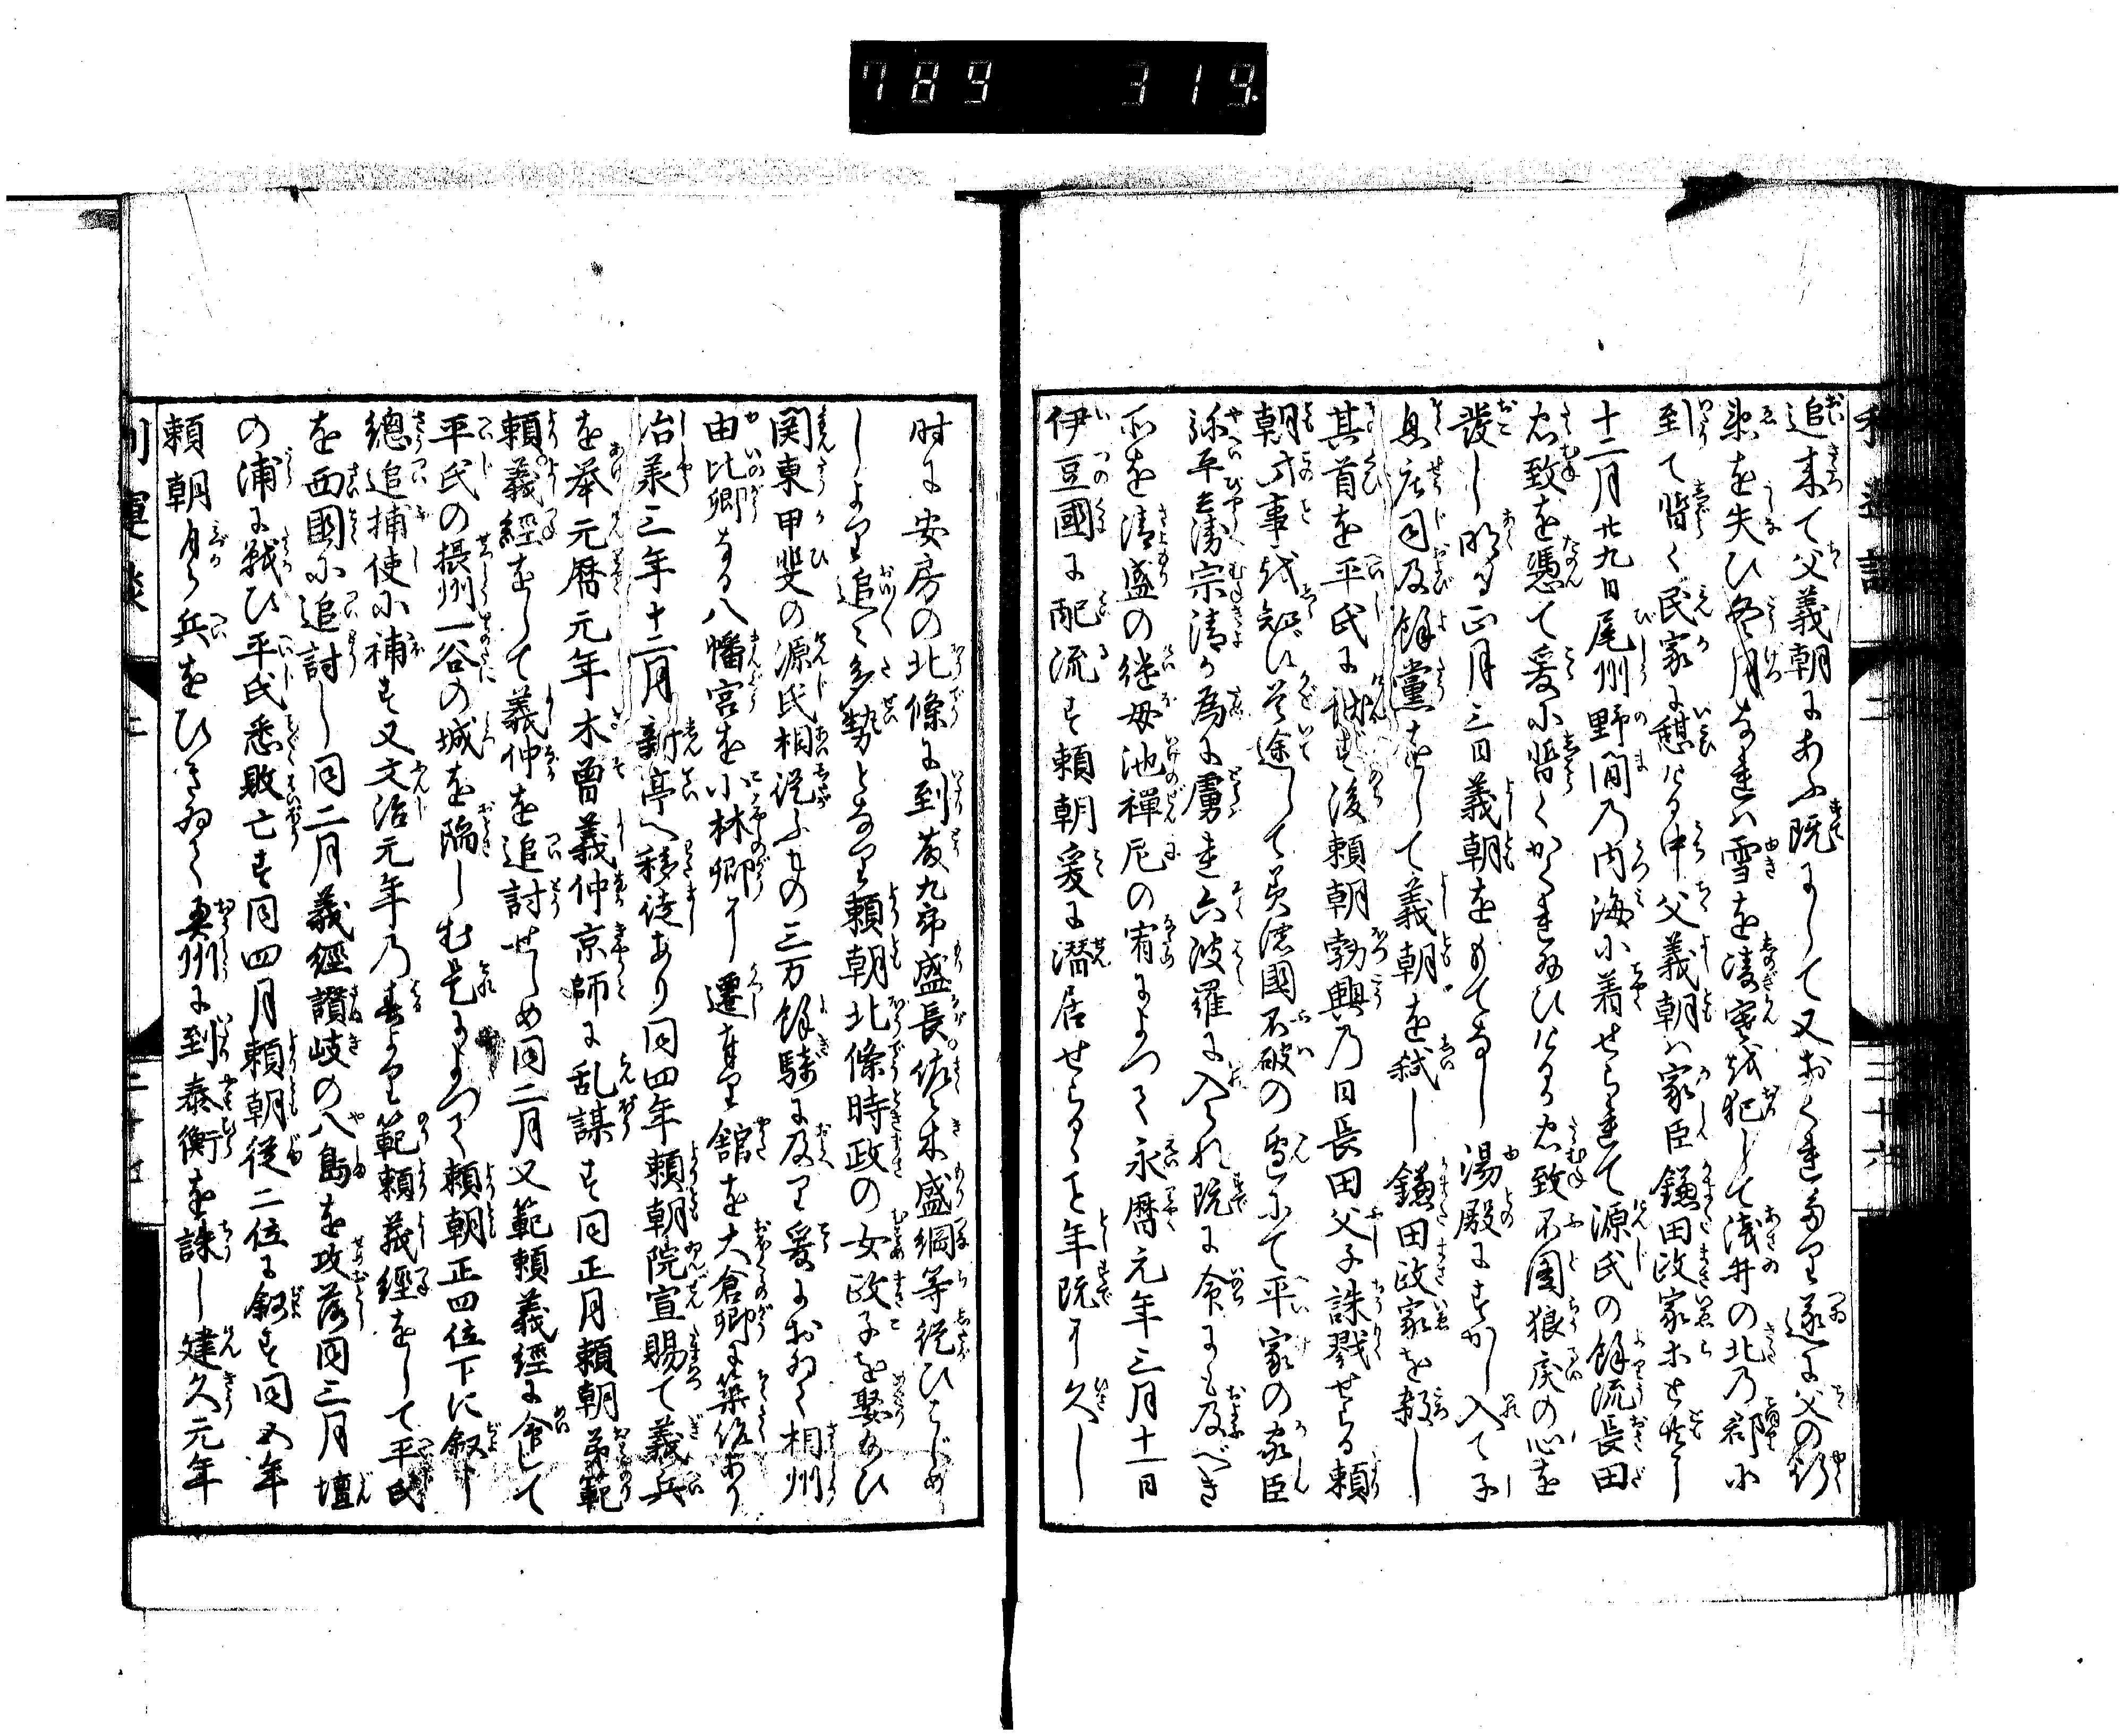 789 319
追来て父義朝にあふ既にして又おくれたり遂に父の行
衛を失ひ冬月なれば雪を凌寒を犯して浅井の北の郡に
到て暫く民家に憩ける中父義朝は家臣鎌田政家等と共に
十二月廿九日尾州野間の内海に着せられて源氏の餘流長田
忠致を憑て爰に暫くかくれ給ひけるに忠致不図狼戻の心を
發し明る正月三日義朝をもてなし湯殿にすかし入て子
息庄司及餘黨をして義朝を弑し鎌田政家を殺し
其首を平氏に献ず後頼朝勃興の日長田父子誅戮せらる頼
朝此事を知ひ首途して美濃國不破の邊にて平家の家臣
弥平兵衛宗清が為に虜れ六波羅に入られ既に命にも及べき
所を清盛の継母池禅尼の宥によつて永暦元年三月十一日
伊豆國に配流す頼朝爰に潜居せらるゝこと年既に久し
時に安房の北條に到藤九郎盛長佐々木盛綱等従ひはじめ
しより追々多勢となり頼朝北條時政の女政子を娶給ひ
関東甲斐の源氏相従ふもの三万餘騎に及り爰におゐて相州
由比郷なる八幡宮を小林郷に遷奉り舘を大倉郷に築給あり
治承三年十二月新亭へ移徒あり同四年頼朝院宣賜て義兵
を挙元暦元年木曽義仲京師に乱謀す同正月頼朝弟範
頼義經をして義仲を追討せしめ同二月又範頼義經に命じて
平氏の摂州一谷の城を陥しむ是によつて頼朝正四位下に叙し
總追捕使に補す又文治元年の春より範頼義經をして平氏
を西國に追討し同二月義經讃岐の八島を攻落同三月壇
の浦に戦ひ平氏悉敗亡す同四月頼朝従二位に叙す同五年
頼朝自ら兵をひきゐて奥州に到泰衡を誅し建久元年